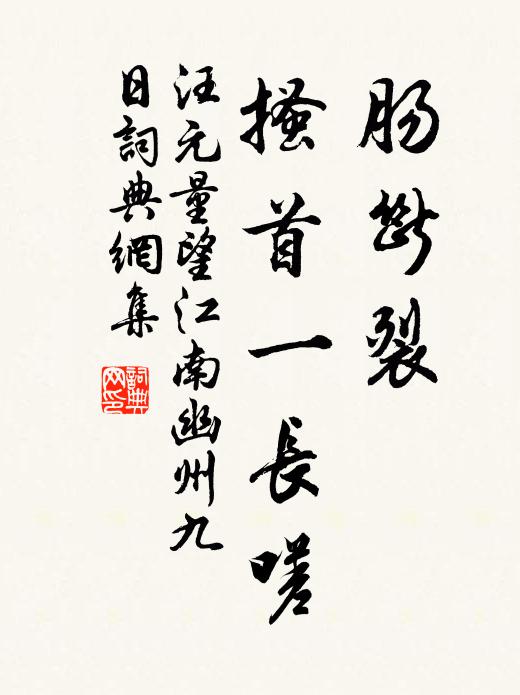 肠断裂
搔首一长嗟
汪元量望江南幽州九
日詞典網集
詞典
网印